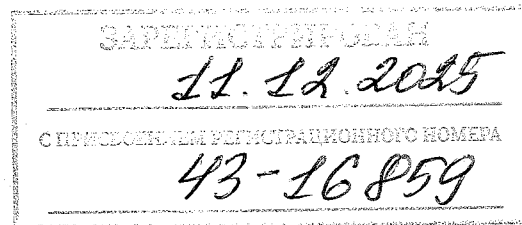 ЗАРЕГИСТРИРОВАН
11.12.2025
С ПРИСВОЕНИЕМ РЕГИСТРАЦИОННОГО НОМЕРА
43-16859